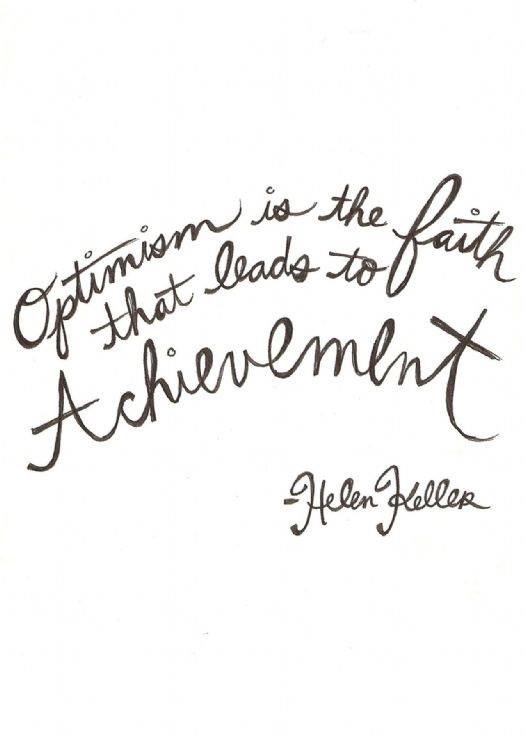 Optimism is the faith
that leads to
Achievement
-Helen Keller